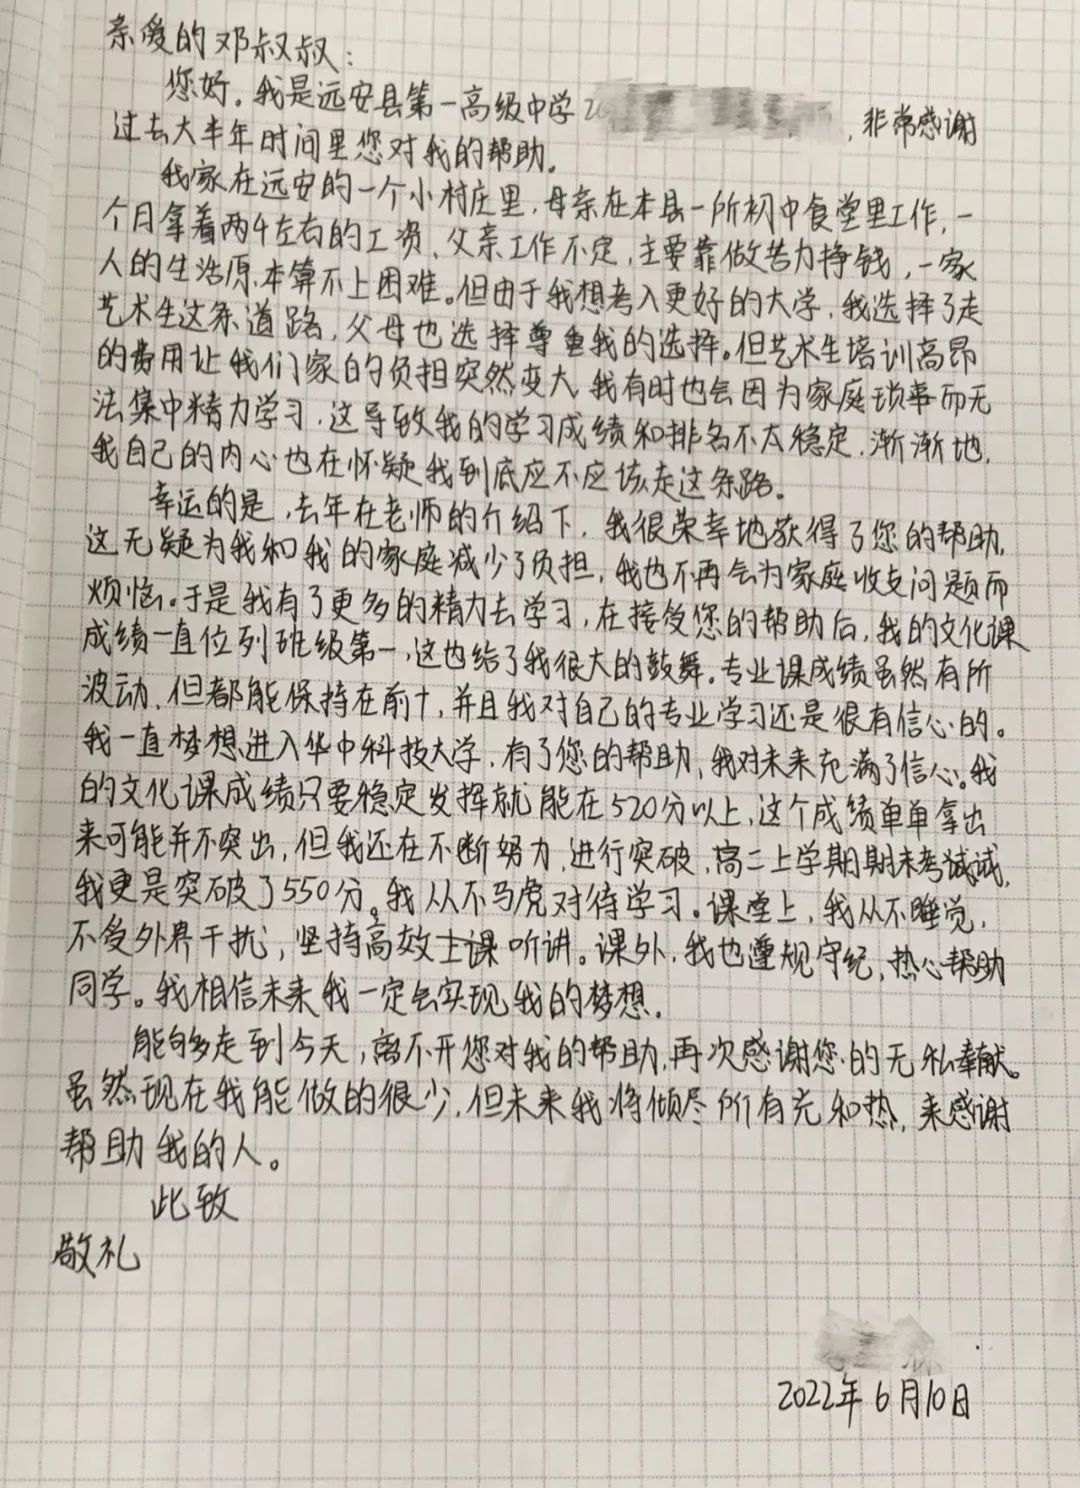 亲爱的邓叔叔：
您好。我是远安县第一高级中学20 ，非常感谢
过去大半年时间里您对我的帮助。
我家在远安的一个小村庄里，母亲在本县一所初中食堂里工作，一
个月拿着两千左右的工资，父亲工作不定，主要靠做苦力挣钱，一家
人的生活原本算不上困难。但由于我想考入更好的大学，我选择了走
艺术生这条道路，父母也选择尊重我的选择。但艺术生培训高昂
的费用让我们家的负担突然变大，我有时也会因为家庭琐事而无
法集中精力学习，这导致我的学习成绩和排名不太稳定，渐渐地，
我自己的内心也在怀疑我到底应不应该走这条路。
幸运的是，去年在老师的介绍下，我很荣幸地获得了您的帮助，
这无疑为我和我的家庭减少了负担，我也不再会为家庭收支问题而
烦恼。于是我有了更多的精力去学习，在接受您的帮助后，我的文化课
成绩一直位列班级第一，这也给了我很大的鼓舞。专业课成绩虽然有所
波动，但都能保持在前十，并且我对自己的专业学习还是很有信心的。
我一直梦想进入华中科技大学，有了您的帮助，我对未来充满了信心。我
的文化课成绩只要稳定发挥就能在520分以上，这个成绩单单拿出
来可能并不突出，但我还在不断努力，进行突破，高二上学期期末考试，
我更是突破了550分。我从不马虎对待学习。课堂上，我从不睡觉，
不受外界干扰，坚持高效上课听讲。课外，我也遵规守纪，热心帮助
同学。我相信未来我一定会实现我的梦想。
能够走到今天，离不开您对我的帮助，再次感谢您的无私奉献。
虽然现在我能做的很少，但未来我将倾尽所有光和热，来感谢
帮助我的人。
此致
敬礼
2022年6月10日